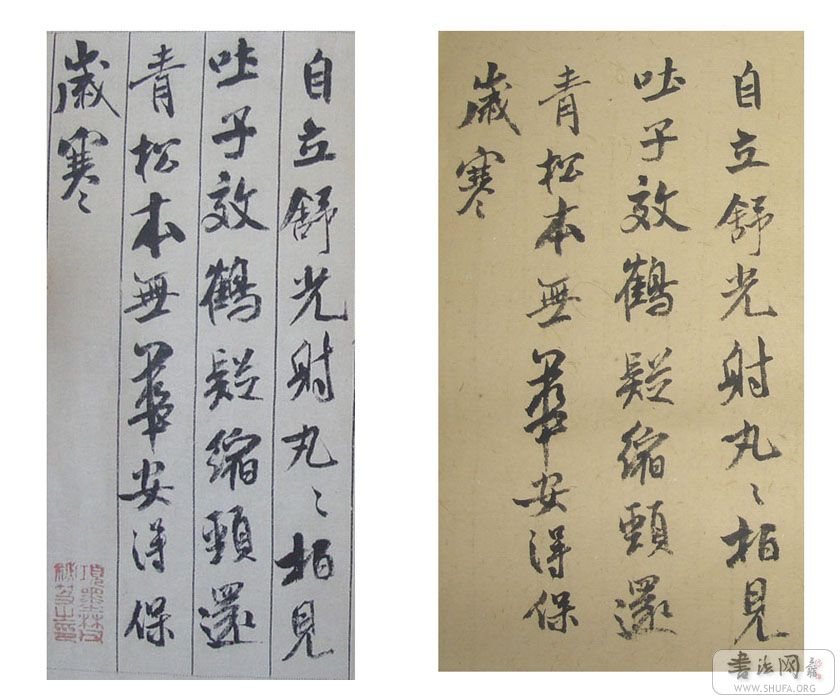 自立舒光射丸〻柏見
吐子效鶴疑縮頸還
青松本無華安得保
歲寒
項墨林父
秘笈之印
自立舒光射丸〻柏見
吐子效鶴疑縮頸還
青松本無華安得保
歲寒
書法网
WWW.SHUFA.ORG